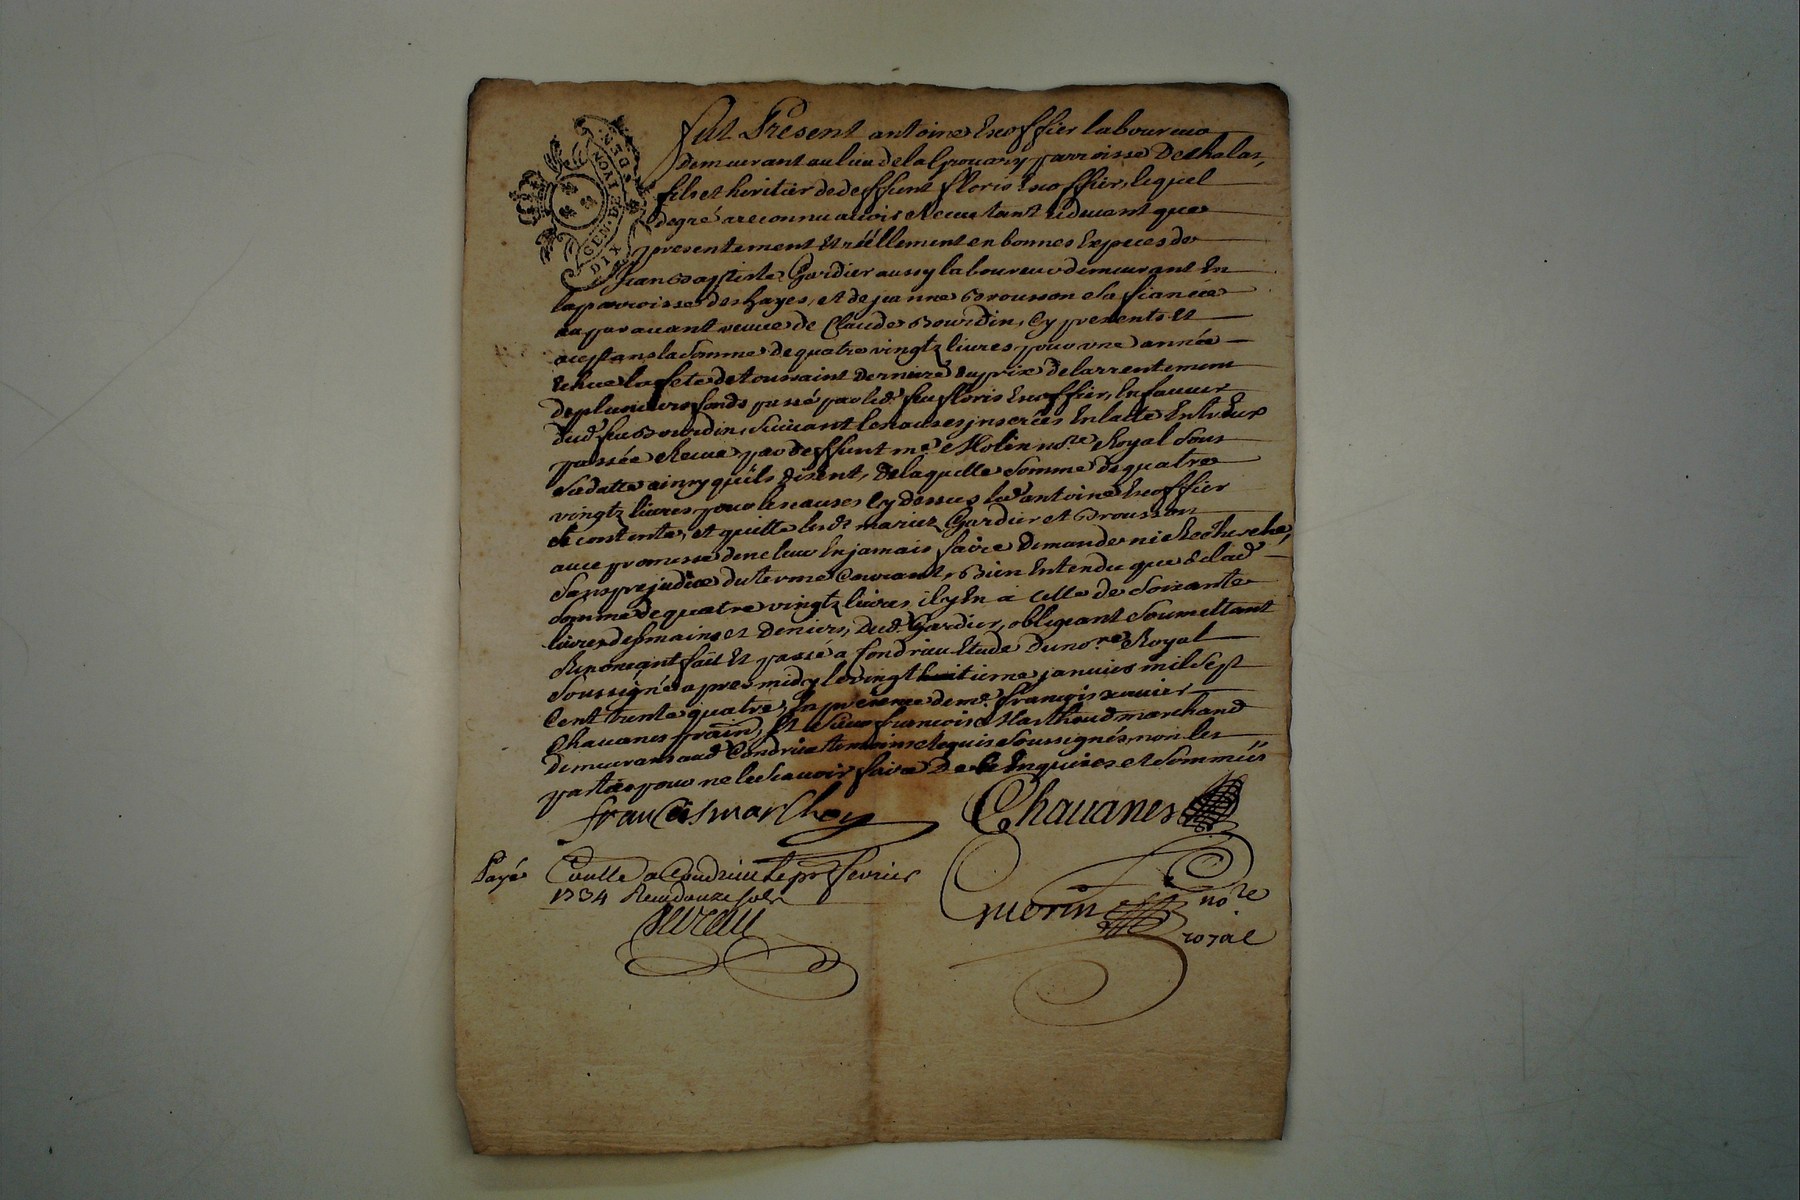 GEN. DE LYON
DIX DEN.
fut Present antoine laboureur
demeurant au lieu de la parroisse Dechalas,
fils et heritier de deffunt floris lequel
degré a reconnu avoir et content cidevant que
presentement et réellement en bonnes Especes de
Jean Baptiste Gardier aussy laboureur demeurant En
la parroisse des hayes, et de jeanne Brousson sa fiancée
auparavant veuve de Claude Bourdin, Cy presents et
acceptans la somme de quatre vingtz livres pour une année
Echue la fete de toussaint derniere du prix de larrentement
de plusieurs fonds passé par led. feu floris En faveur
dud. feu Bourdin, suivant les causes jnserées En lacte Entr Eux
passée Receue par deffunt me. Molin nore. Royal sous
sa datte ainsy quils disent, de laquelle somme de quatre
vingtz livres pour les causes Cy dessus led. antoine
se contente, et quitte lesd. mariez Gardier et Brousson
avec promesse de ne leur En jamais faire demande ni Recherche,
sans prejudice du terme Courant, Bien Entendu que de lad.
somme de quatre vingtz livres, il y En a celle de soixante
livres des mains et deniers, dud. Gardier, obligeant soumettant
Renonçant fait et passé a Condrieu Etude du nore. Royal
soussigné apres midy le vingt huitieme janvier mil sept
Cent trente quatre, En presence de me. françois xavier
Chavanes et sieur françois Marthoud marchand
demeurans aud. Condrieu temoins Requis soussignés, non les
parties pour ne le scavoir faire De ce Enquises et sommées
Chavanes
Payé Conllé a Condrieu le pr. fevrier
1734 Receu douze sols
Guerin nore
royal